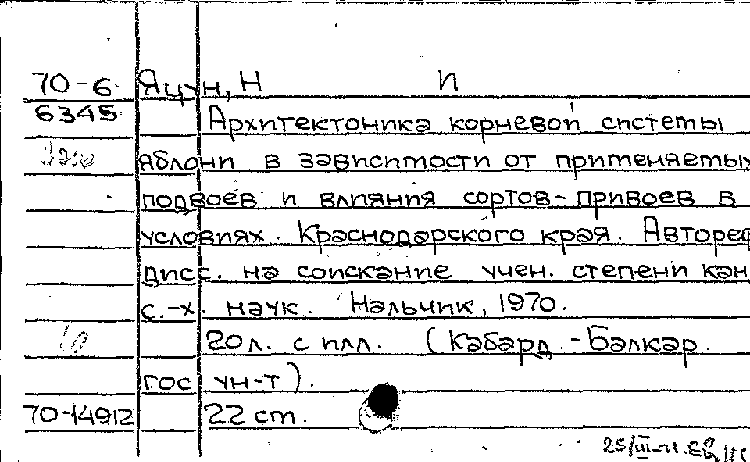 70-6 Яцун, Н И
6345 Архитектоника корневой системы
яблони в зависимости от применяемых
подвоев и влияния сортов-привоев в
условиях. Краснодарского края. Авторе
дисс. на соискание учен. степени кан
с.-х. наук. Нальчик, 1970.
20л. с илл. (Кабард.-Балкар.
гос ун-т).
70-14912 22 см.